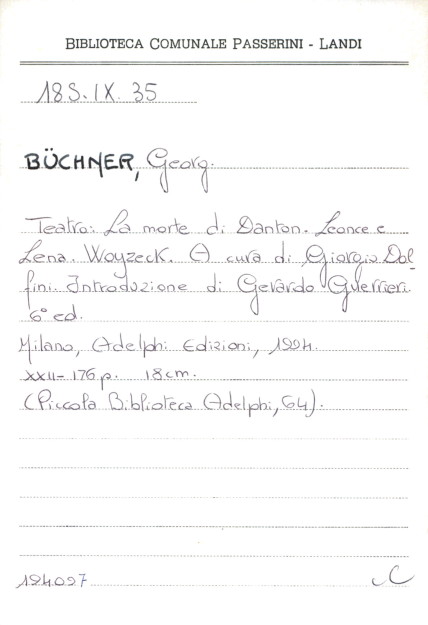 BIBLIOTECA COMUNALE PASSERINI - LANDI
18S. IX. 35
BÜCHNER, Georg.
Teatro: La morte di Danton. Leonce e
Lena. Woyzeck. A cura di Giorgio Dol
fini. Introduzione di Gerardo Guerrieri.
6° ed.
Milano, Adelphi Edizioni, 1994.
XXII-176 p. 18 cm.
(Piccola Biblioteca Adelphi, 64).
194097